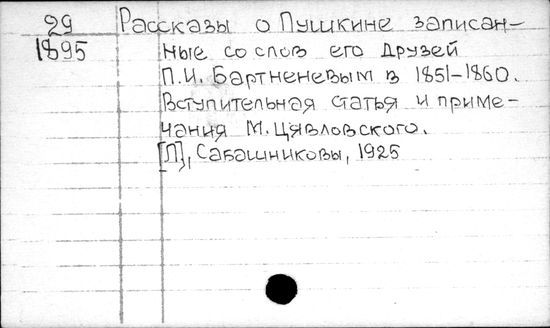 29 Рассказы о Пушкине записан-
1895 ные со слов его друзей
П.И. Бартненевым в 1851-1860.
Вступительная статья и приме-
чания М. Цявловского.
[Л], Сабашниковы, 1925